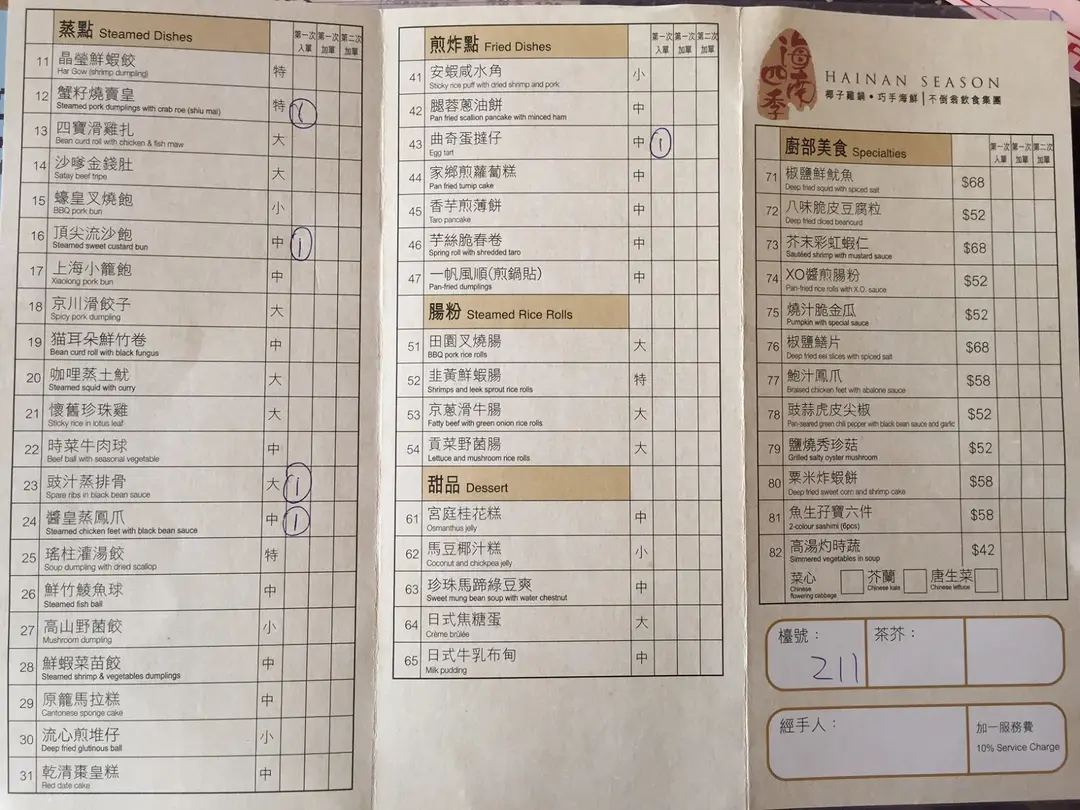 蒸點 Steamed Dishes
第一次入單 第一次加單 第二次加單
11 晶瑩鮮蝦餃 特
Har Gow (shrimp dumpling)
12 蟹籽燒賣皇 特 1
Steamed pork dumplings with crab roe (shiu mai)
13 四寶滑雞扎 大
Bean curd roll with chicken & fish maw
14 沙嗲金錢肚 大
Satay beef tripe
15 蠔皇叉燒飽 小
BBQ pork bun
16 頂尖流沙飽 中 1
Steamed sweet custard bun
17 上海小籠飽 中
Xiaolong pork bun
18 京川滑餃子 大
Spicy pork dumpling
19 猫耳朵鮮竹卷 中
Bean curd roll with black fungus
20 咖哩蒸土魷 大
Steamed squid with curry
21 懷舊珍珠雞 大
Sticky rice in lotus leaf
22 時菜牛肉球 中
Beef ball with seasonal vegetable
23 豉汁蒸排骨 大 1
Spare ribs in black bean sauce
24 醬皇蒸鳳爪 中 1
Steamed chicken feet with black bean sauce
25 瑤柱灌湯餃 特
Soup dumpling with dried scallop
26 鮮竹鯪魚球 中
Steamed fish ball
27 高山野菌餃 小
Mushroom dumpling
28 鮮蝦菜苗餃 中
Steamed shrimp & vegetables dumplings
29 原籠馬拉糕 中
Cantonese sponge cake
30 流心煎堆仔 小
Deep fried glutinous ball
31 乾清棗皇糕 中
Red date cake
煎炸點 Fried Dishes
第一次入單 第一次加單 第二次加單
41 安蝦咸水角 小
Sticky rice puff with dried shrimp and pork
42 腿蓉蔥油餅 中
Pan fried scallion pancake with minced ham
43 曲奇蛋撻仔 中 1
Egg tart
44 家鄉煎蘿蔔糕 中
Pan fried turnip cake
45 香芋煎薄餅 中
Taro pancake
46 芋絲脆春卷 中
Spring roll with shredded taro
47 一帆風順(煎鍋貼) 中
Pan-fried dumplings
腸粉 Steamed Rice Rolls
51 田園叉燒腸 大
BBQ pork rice rolls
52 韭黃鮮蝦腸 特
Shrimps and leek sprout rice rolls
53 京蔥滑牛腸 大
Fatty beef with green onion rice rolls
54 貢菜野菌腸 大
Lettuce and mushroom rice rolls
甜品 Dessert
61 宮庭桂花糕 中
Osmanthus jelly
62 馬豆椰汁糕 小
Coconut and chickpea jelly
63 珍珠馬蹄綠豆爽 中
Sweet mung bean soup with water chestnut
64 日式焦糖蛋 大
Crème brûlée
65 日式牛乳布甸 中
Milk pudding
海南四季
HAINAN SEASON
椰子雞鍋•巧手海鮮|不倒翁飲食集團
廚部美食 Specialties
第一次入單 第一次加單 第二次加單
71 椒鹽鮮魷魚 $68
Deep fried squid with spiced salt
72 八味脆皮豆腐粒 $52
Deep fried diced beancurd
73 芥末彩虹蝦仁 $68
Sautéed shrimp with mustard sauce
74 XO醬煎腸粉 $52
Pan-fried rice rolls with X.O. sauce
75 燒汁脆金瓜 $52
Pumpkin with special sauce
76 椒鹽鱔片 $68
Deep fried eel slices with spiced salt
77 鮑汁鳳爪 $58
Braised chicken feet with abalone sauce
78 豉蒜虎皮尖椒 $52
Pan-seared green chili pepper with black bean sauce and garlic
79 鹽燒秀珍菇 $52
Grilled salty oyster mushroom
80 粟米炸蝦餅 $58
Deep fried sweet corn and shrimp cake
81 魚生孖寶六件 $58
2-colour sashimi (6pcs)
82 高湯灼時蔬 $42
Simmered vegetables in soup
菜心 芥蘭 唐生菜
Chinese flowering cabbage Chinese kale Chinese lettuce
檯號： 211 茶芥：
經手人： 加一服務費
10% Service Charge